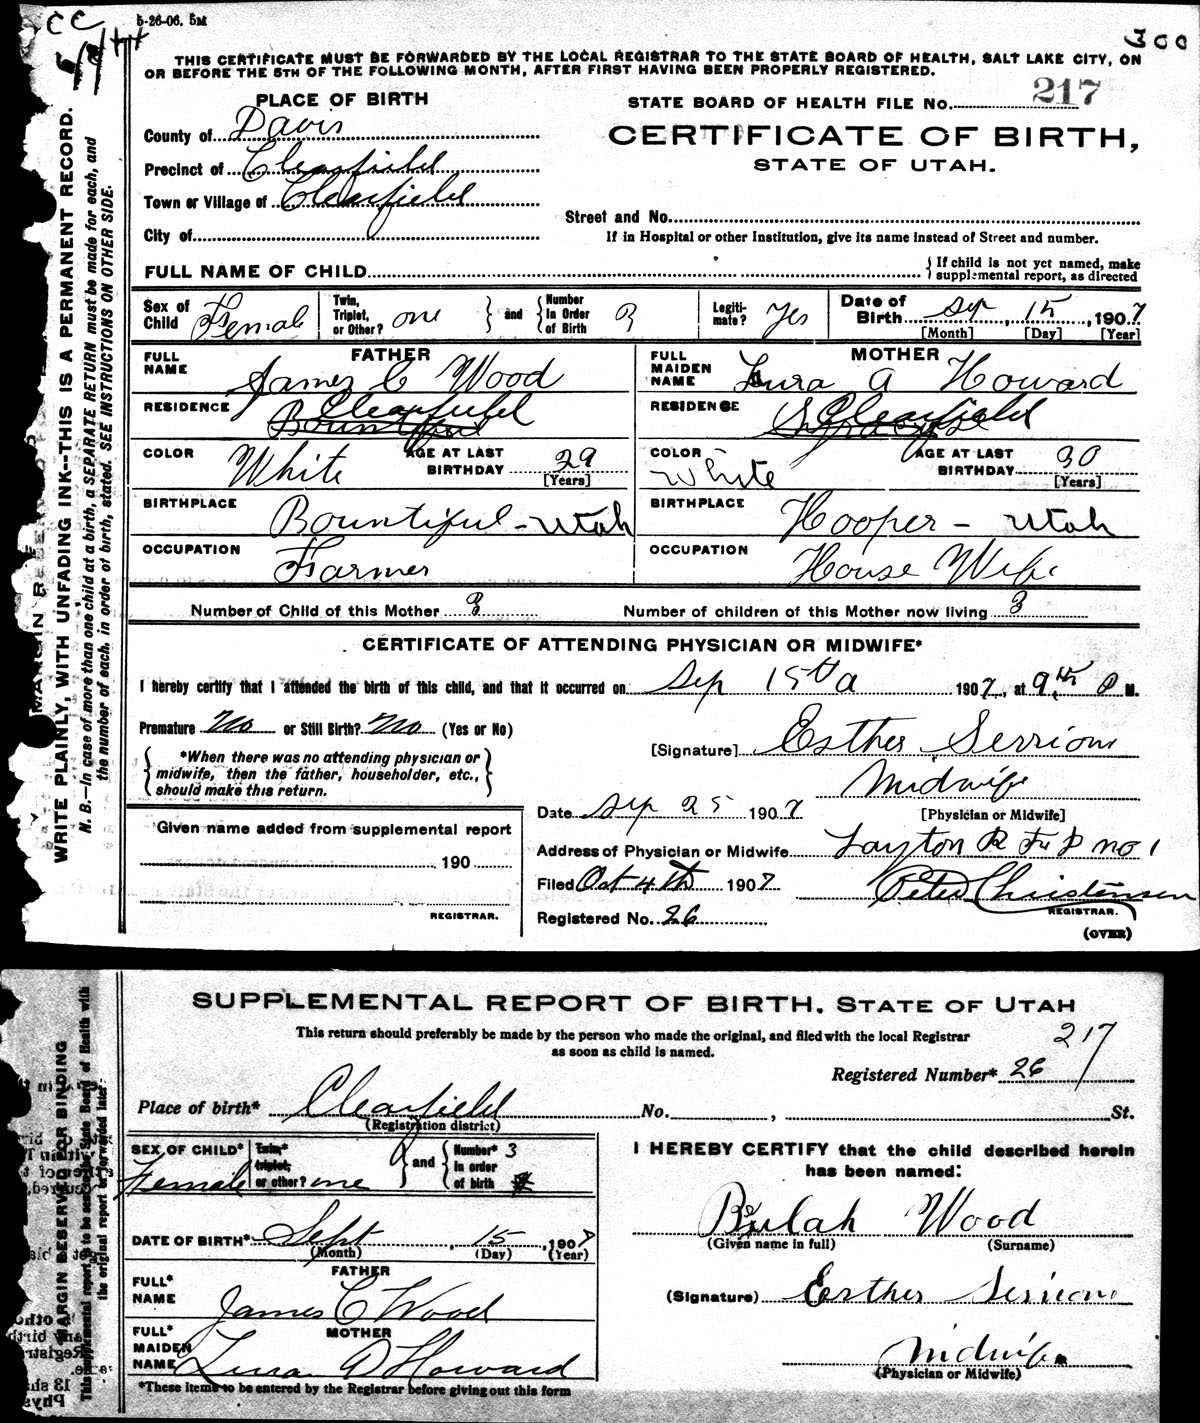 CC
5-26-06. 5M
300
THIS CERTIFICATE MUST BE FORWARDED BY THE LOCAL REGISTRAR TO THE STATE BOARD OF HEALTH, SALT LAKE CITY, ON
OR BEFORE THE 5TH OF THE FOLLOWING MONTH, AFTER FIRST HAVING BEEN PROPERLY REGISTERED.
WRITE PLAINLY, WITH UNFADING INK--THIS IS A PERMANENT RECORD.
N. B.--In case of more than one child at a birth, a SEPARATE RETURN must be made for each, and
the number of each, in order of birth, stated. SEE INSTRUCTIONS ON OTHER SIDE.
PLACE OF BIRTH
STATE BOARD OF HEALTH FILE No. 217
County of Davis
CERTIFICATE OF BIRTH,
Precinct of Clearfield
STATE OF UTAH.
Town or Village of Clearfield
Street and No.
City of
If in Hospital or other Institution, give its name instead of Street and number.
FULL NAME OF CHILD
If child is not yet named, make
supplemental report, as directed
Sex of Child Female
Twin, Triplet, or Other? one
and
Number In Order of Birth
Legiti-mate? Yes
Date of Birth Sep 15, 1907
[Month] [Day] [Year]
FATHER
MOTHER
FULL NAME James C Wood
FULL MAIDEN NAME Lura A Howard
RESIDENCE Clearfield
Bountiful
RESIDENCE Clearfield
Syracuse
COLOR White AGE AT LAST BIRTHDAY 29 [Years]
COLOR White AGE AT LAST BIRTHDAY 30 [Years]
BIRTHPLACE Bountiful - Utah
BIRTHPLACE Hooper - Utah
OCCUPATION Farmer
OCCUPATION House Wife
Number of Child of this Mother 3
Number of children of this Mother now living 3
CERTIFICATE OF ATTENDING PHYSICIAN OR MIDWIFE*
I hereby certify that I attended the birth of this child, and that it occurred on Sep 15th 1907, at 9 P M.
Premature No or Still Birth? No (Yes or No)
[Signature] Esther
*When there was no attending physician or
midwife, then the father, householder, etc.,
should make this return.
Midwife
[Physician or Midwife]
Date Sep 25 1907
Given name added from supplemental report
Address of Physician or Midwife Layton R F D no 1
190
Filed Oct 4th 1907
Peter Christensen
REGISTRAR.
REGISTRAR.
Registered No. 26
(OVER)
SUPPLEMENTAL REPORT OF BIRTH, STATE OF UTAH
This return should preferably be made by the person who made the original, and filed with the local Registrar
as soon as child is named.
217
Registered Number* 26
MARGIN RESERVED FOR BINDING
This supplemental report to be sent to the State Board of Health with
the original report if forwarded later
Place of birth* Clearfield No. , St.
(Registration district)
SEX OF CHILD* Female
Twin,* triplet, or other? one
and
Number* In order of birth 3
I HEREBY CERTIFY that the child described herein
has been named:
Beulah Wood
(Given name in full) (Surname)
DATE OF BIRTH* Sept 15, 1907
(Month) (Day) (Year)
FATHER
FULL* NAME James C Wood
(Signature) Esther
MOTHER
FULL* MAIDEN NAME Lura A Howard
Midwife
(Physician or Midwife)
*These items to be entered by the Registrar before giving out this form